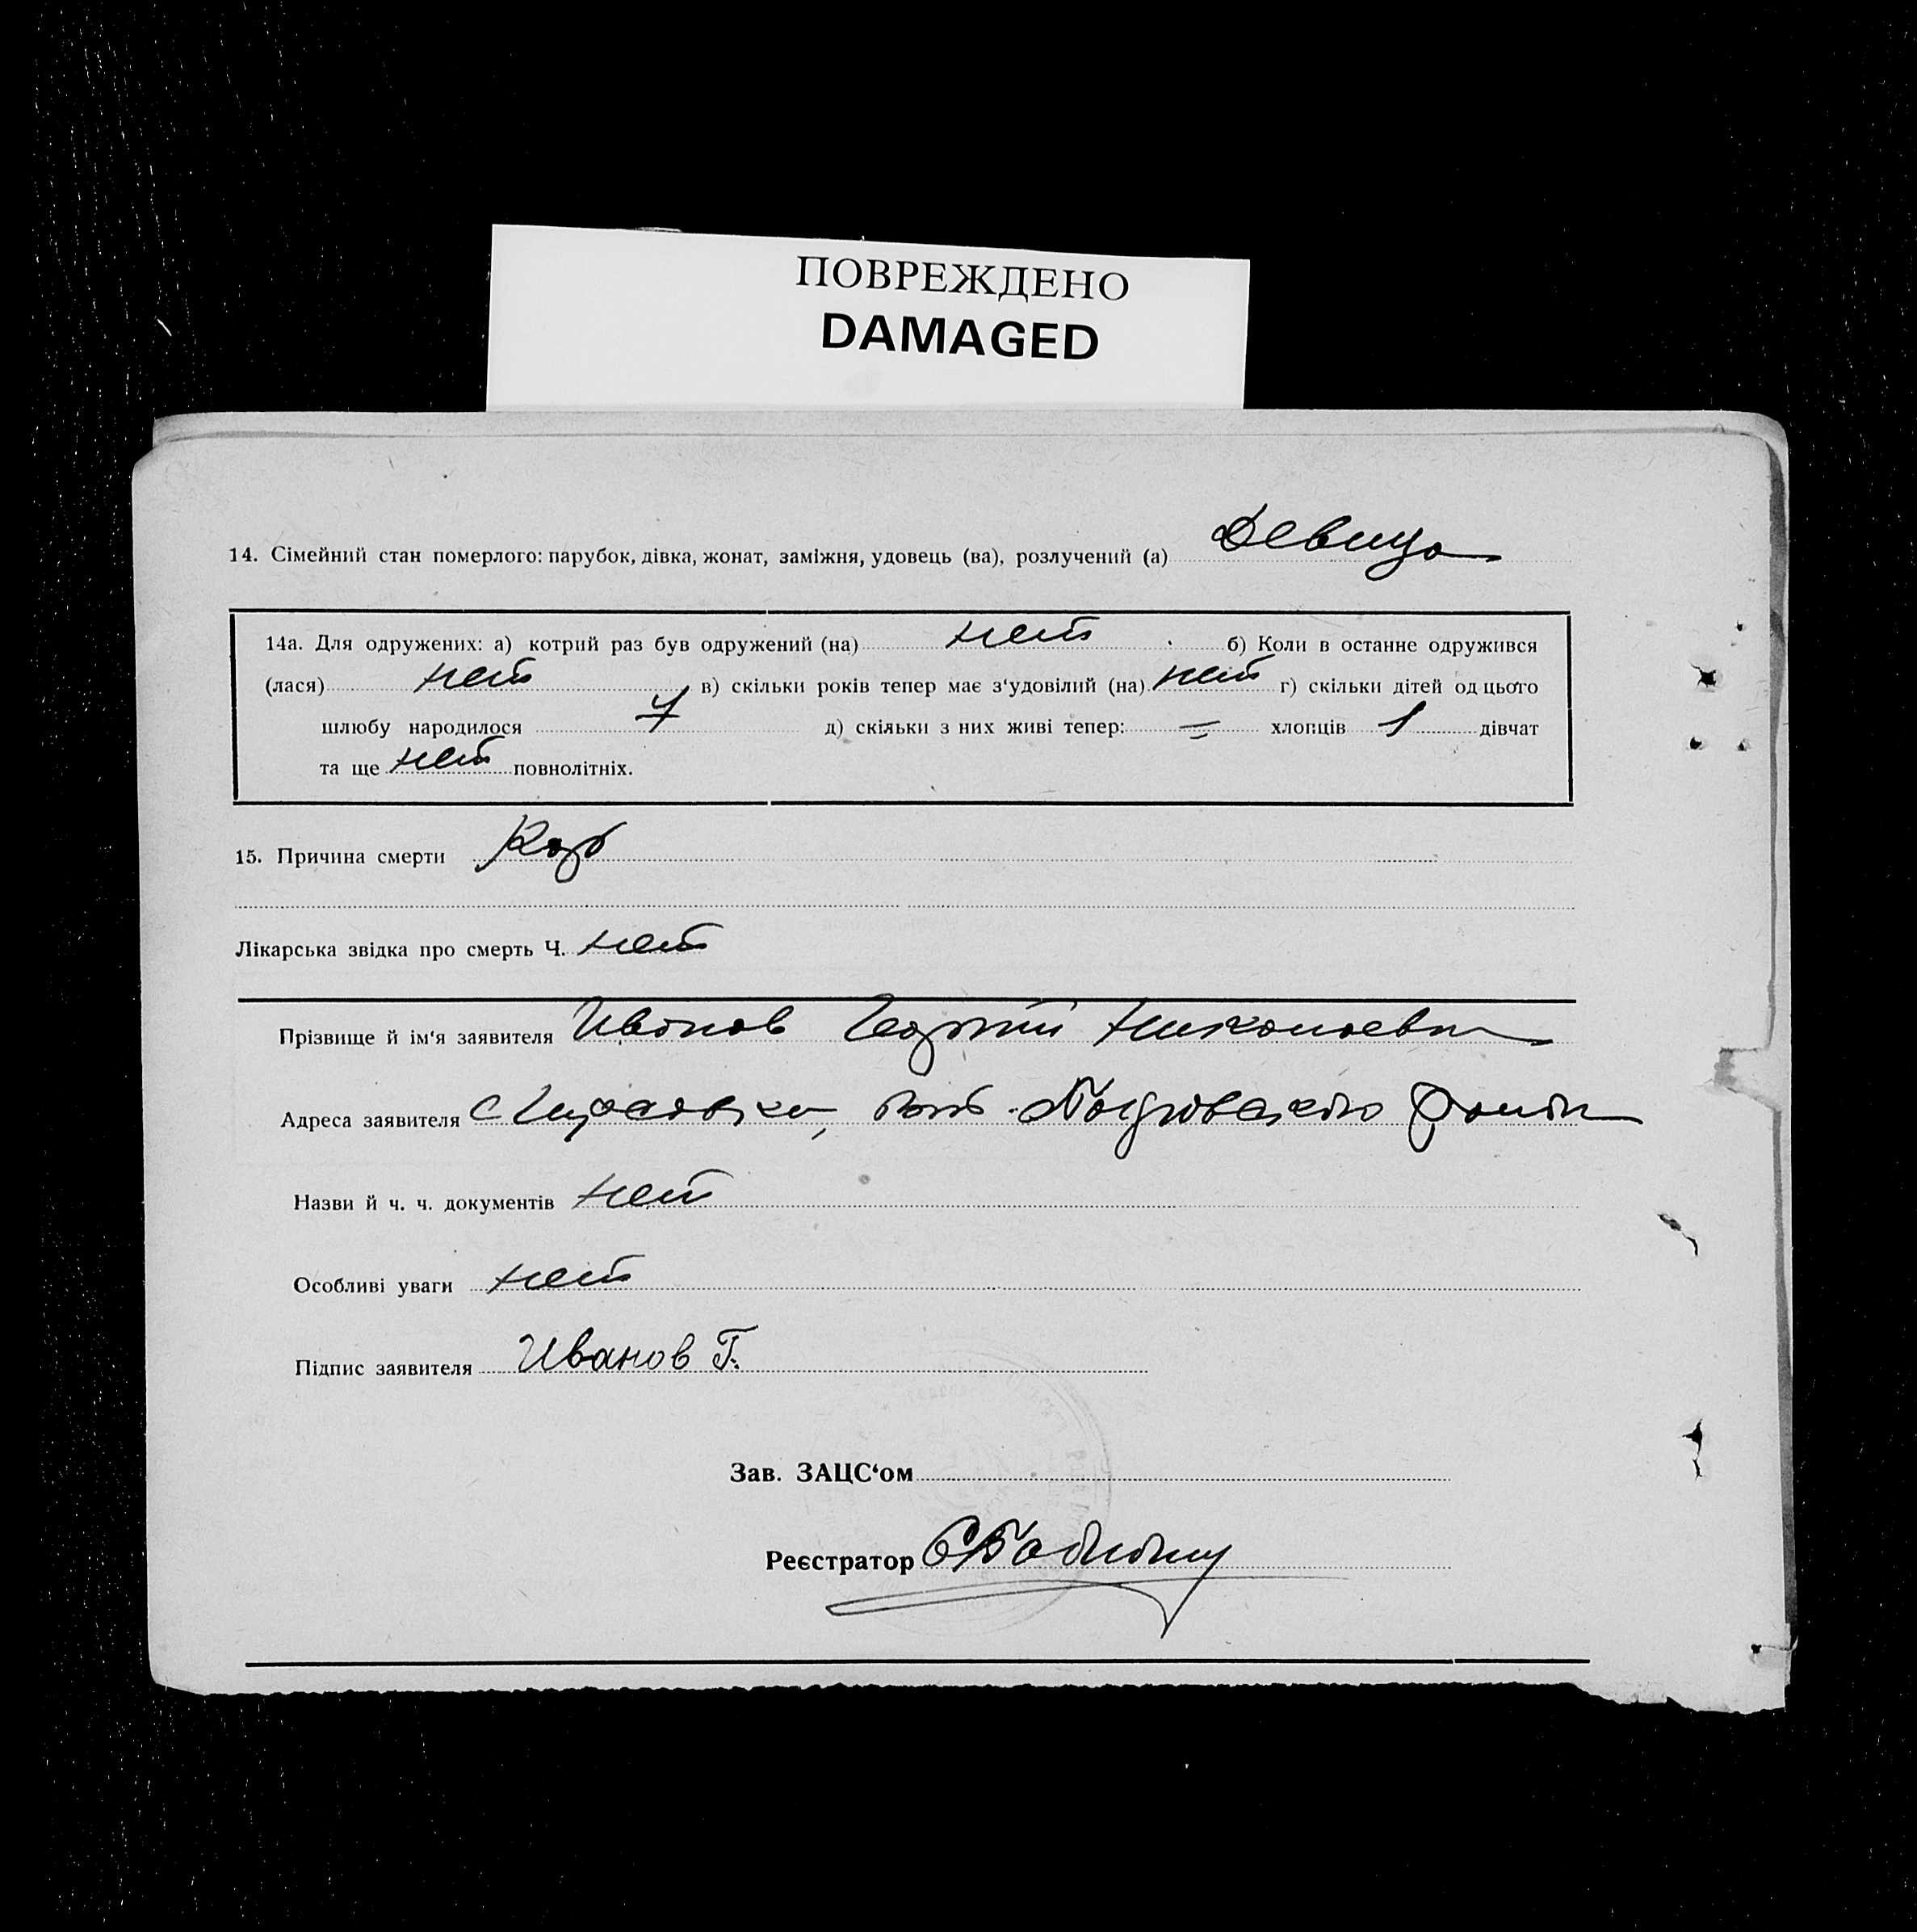 ПОВРЕЖДЕНО
DAMAGED
14. Сімейний стан померлого: парубок, дівка, жонат, заміжня, удовець (ва), розлучений (а) Девица
14а. Для одружених: а) котрий раз був одружений (на) нет б) Коли в останне одружився
(лася) нет в) скільки років тепер має з‘удовілий (на) нет г) скільки дітей од цього
шлюбу народилося д) скільки з них живі тепер: — хлопців 1 дівчат
та ще нет повнолітніх.
15. Причина смерти
Лікарська звідка про смерть Ч. нет
Прізвище й ім‘я заявителя Иванов Георгий Николаевич
Адреса заявителя с
Назви й ч. ч. документів нет
Особливі уваги нет
Підпис заявителя Иванов Г.
Зав. ЗАЦС‘ом
Реєстратор